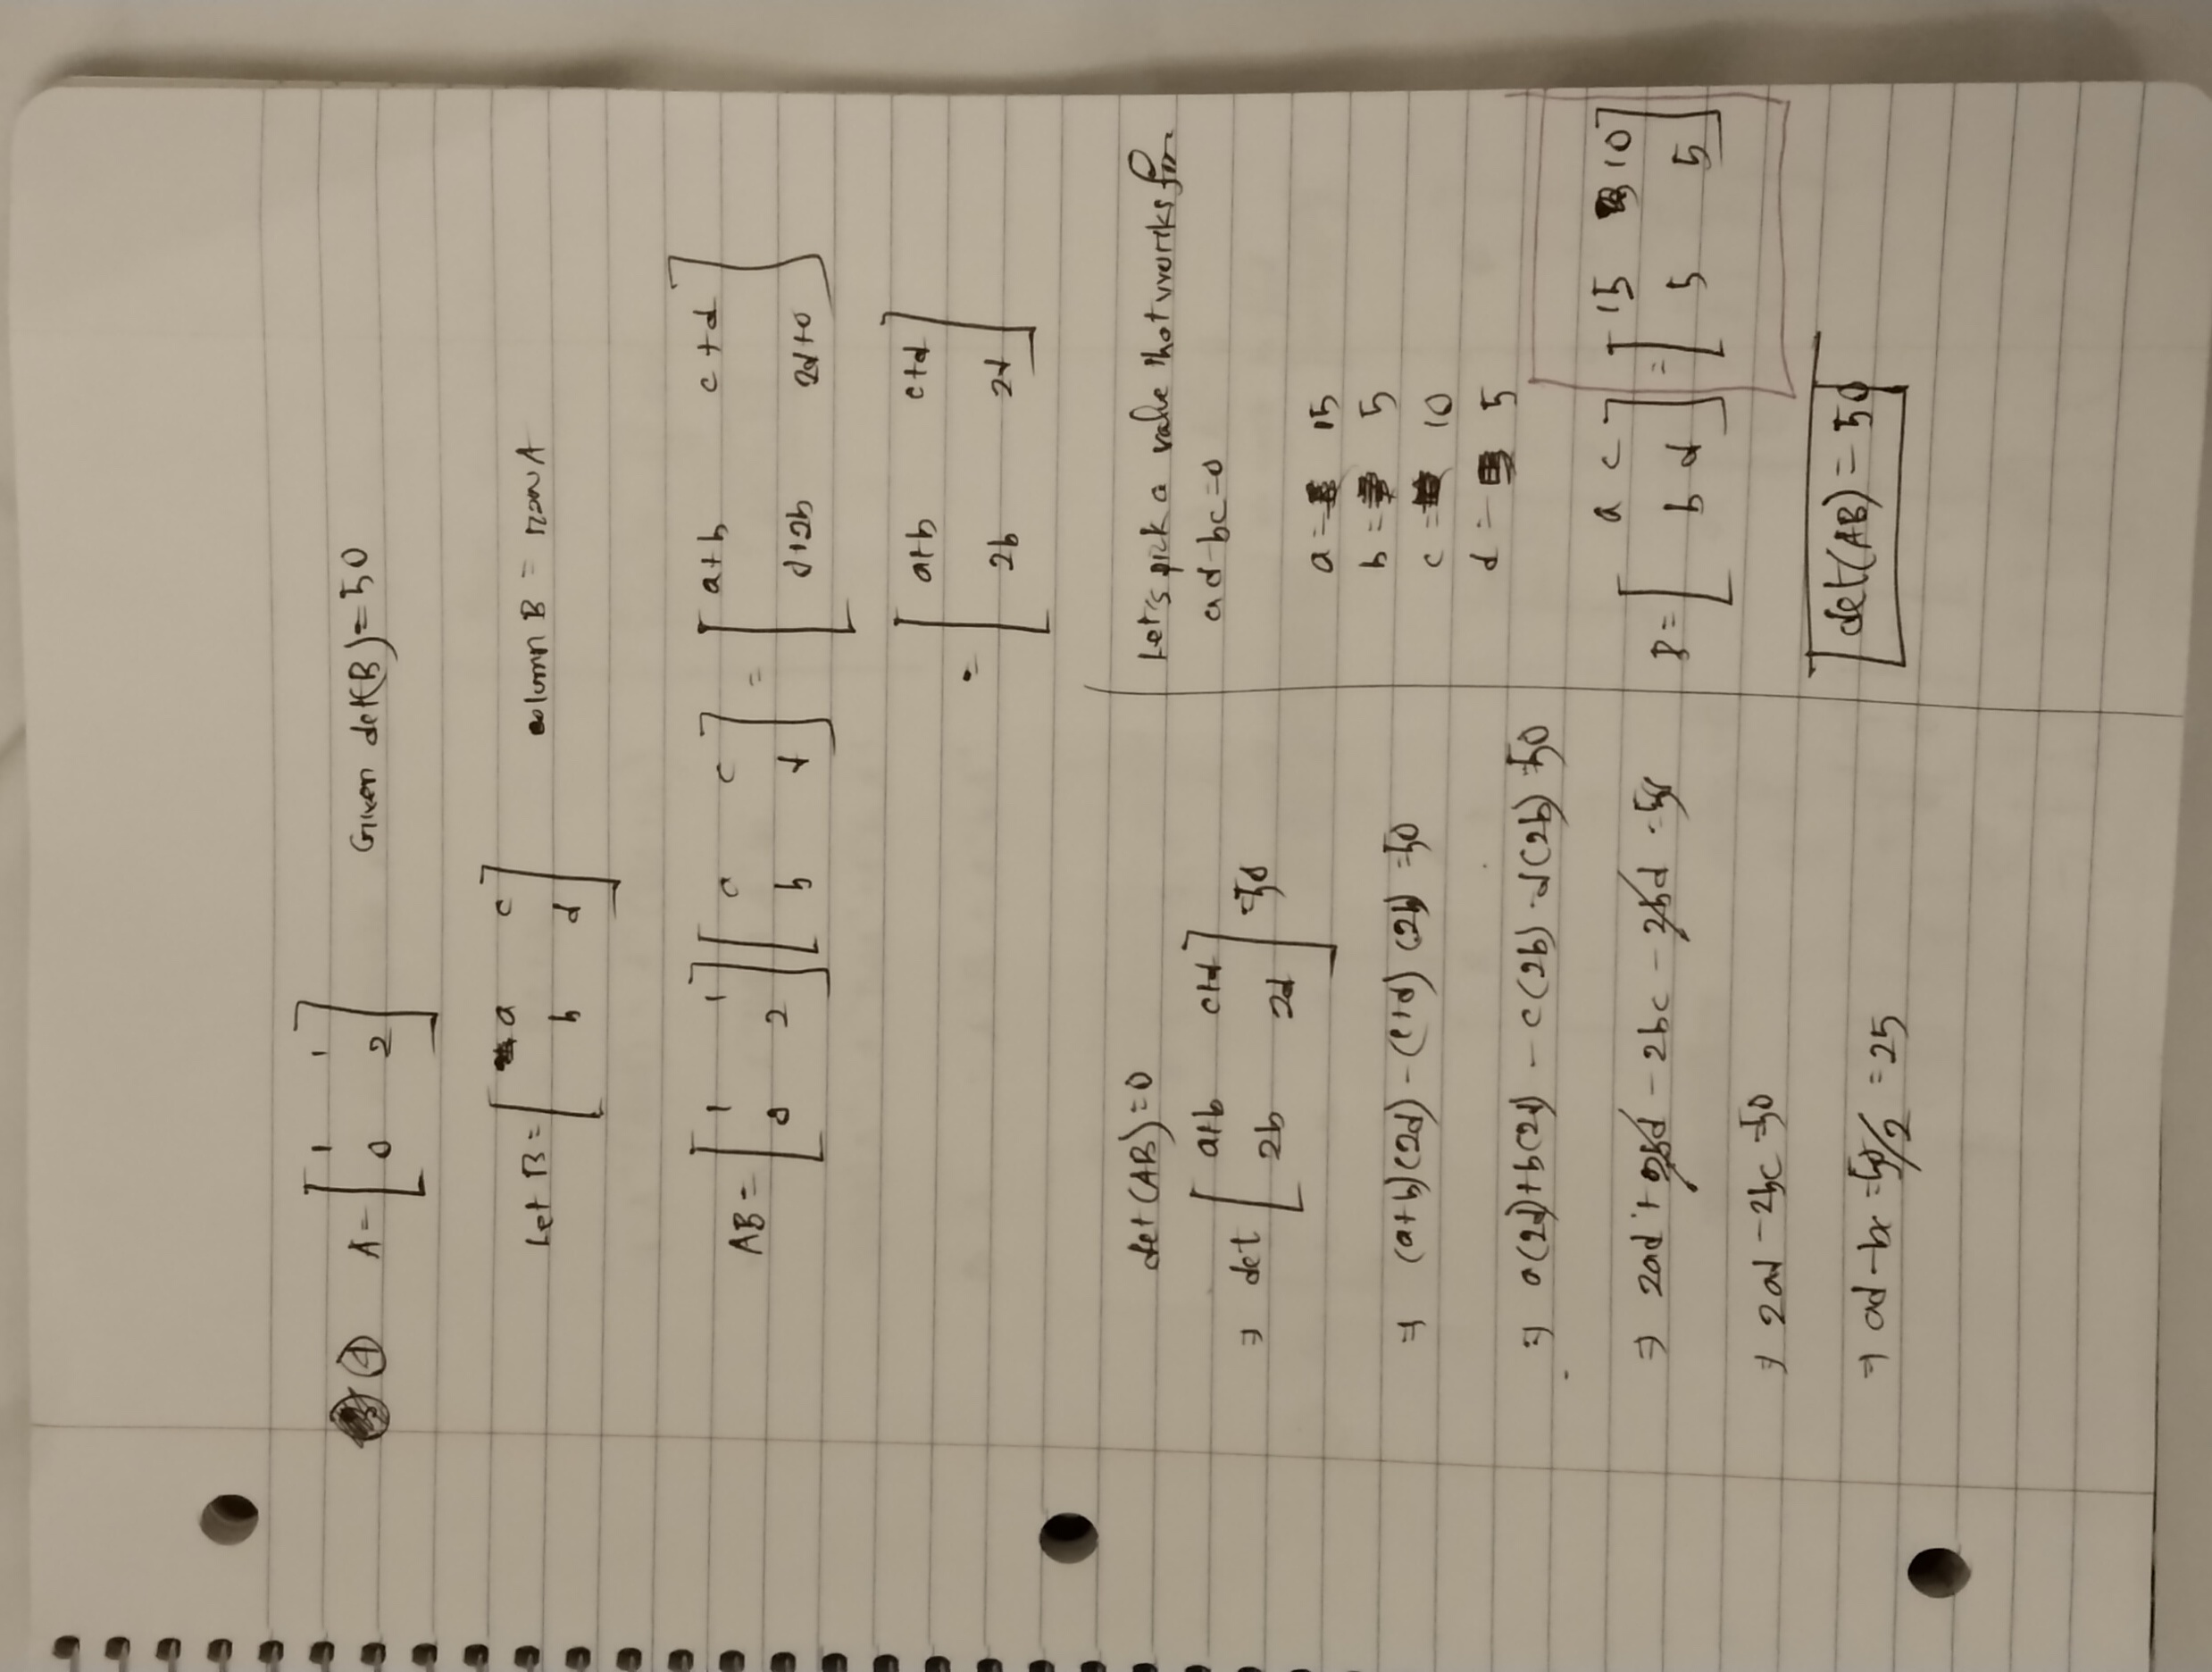 ④ A = [ 1 1 Given det(B) = 50
0 2 ]
Let B = [ a c column B = row A
b d ]
AB = [ 1 1 [ a c = [ a+b c+d
0 2 ] b d ] 0+2b 2d+0 ]
= [ a+b c+d
2b 2d ]
det (AB) = 0
⇒ det [ a+b c+d = 50
2b 2d ]
⇒ (a+b)(2d) - (c+d) (2b) = 50
⇒ a(2d)+b(2d) - c(2b) - d(2b) = 50
⇒ 2ad + 2bd - 2bc - 2bd = 50
⇒ 2ad - 2bc = 50
⇒ ad - bc = 50/2 = 25
Let's pick a value that works for
ad-bc=0
a = 15
b = 5
c = 10
d = 5
B = [ a c = [ 15 10
b d ] 5 5 ]
det(AB) = 50